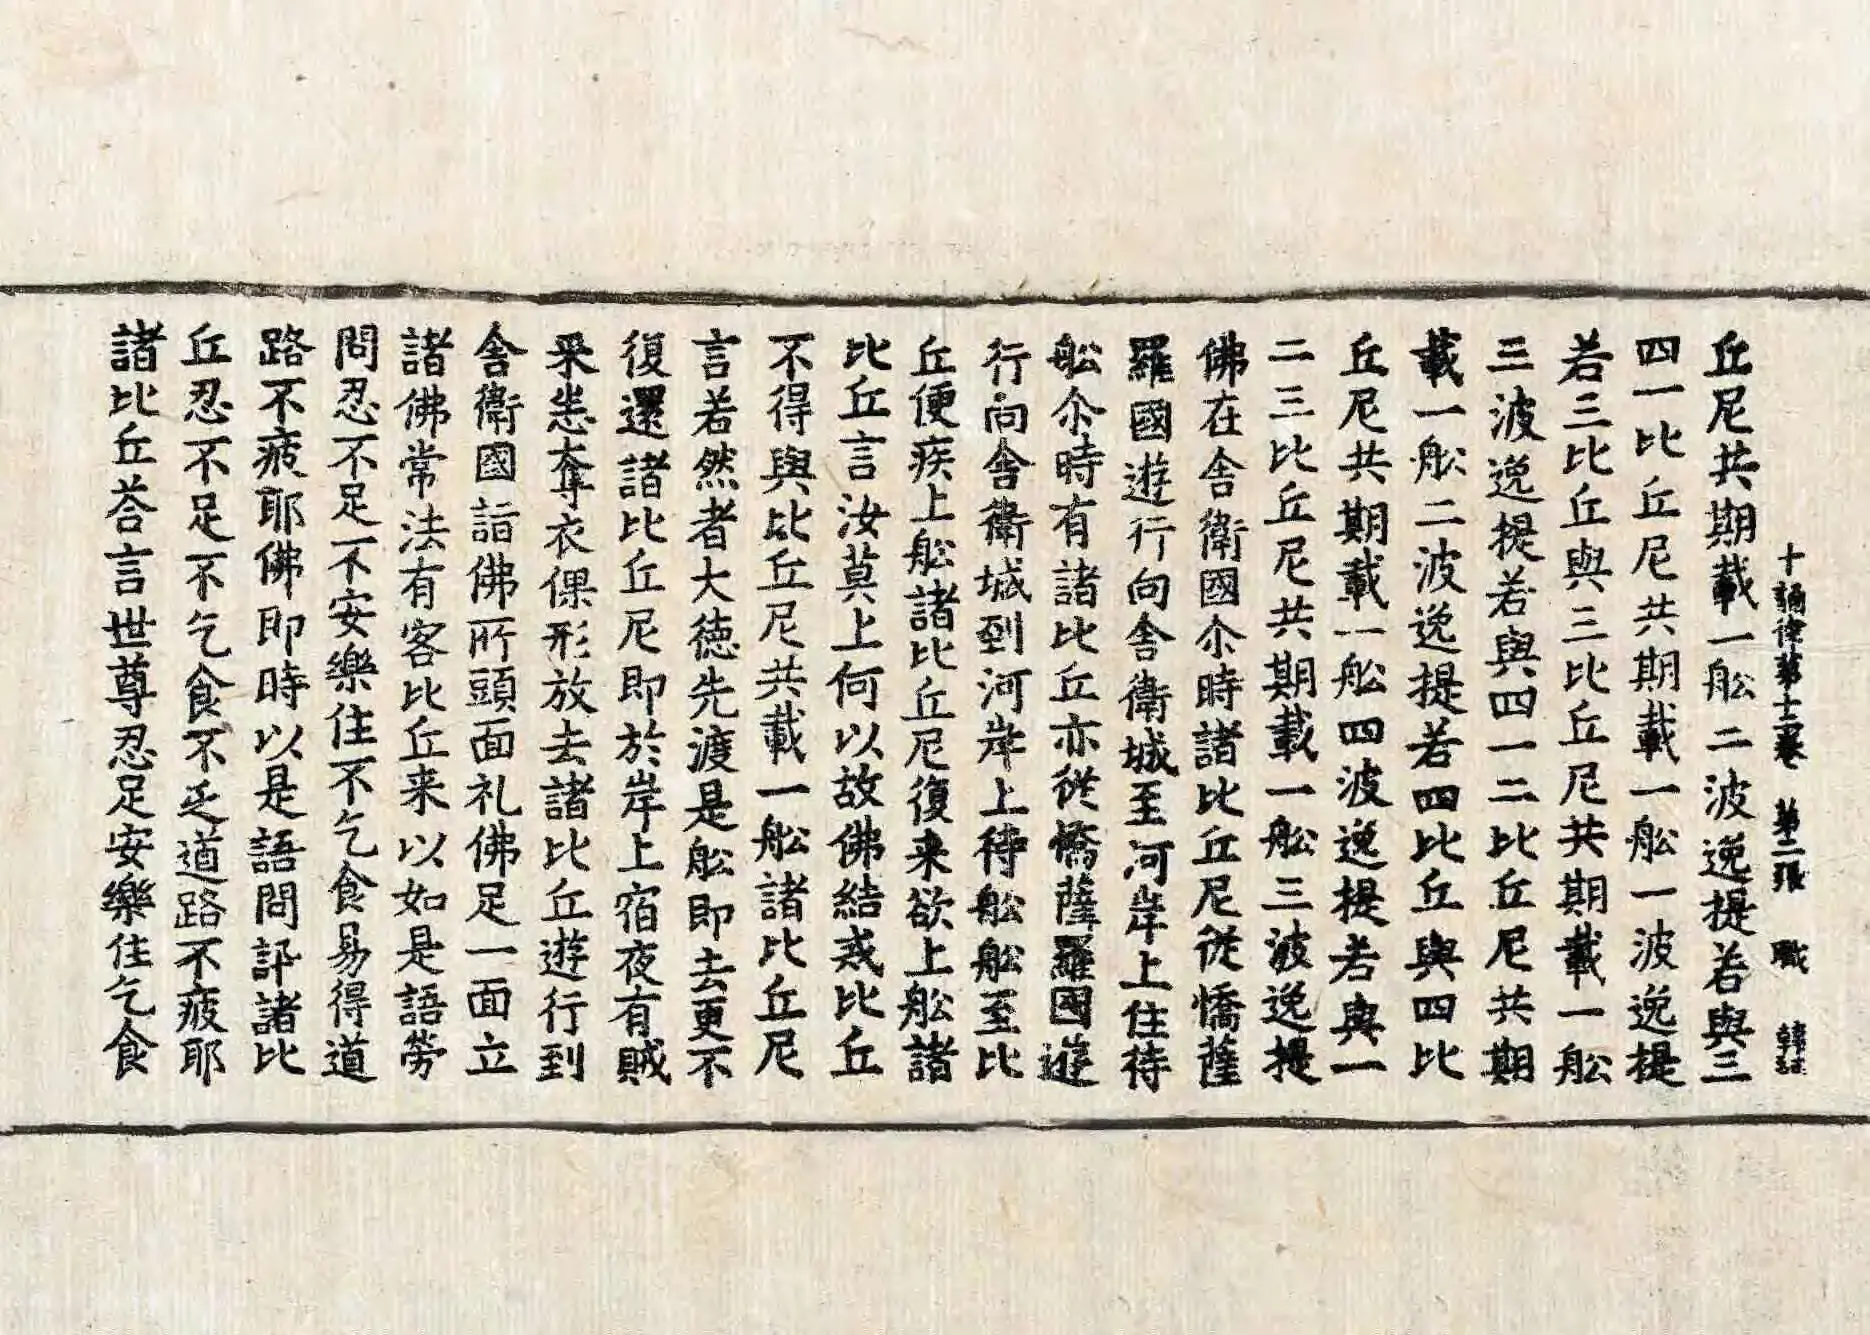 十誦律第十二卷 第二張 職 韓誌
丘尼共期載一舩二波逸提若與三
四一比丘尼共期載一舩一波逸提
若三比丘與三比丘尼共期載一舩
三波逸提若與四一二比丘尼共期
載一舩二波逸提若四比丘與四比
丘尼共期載一舩四波逸提若與一
二三比丘尼共期載一舩三波逸提
佛在舎衛國尒時諸比丘尼從憍薩
羅國遊行向舎衛城至河岸上住待
舩尒時有諸比丘亦從憍薩羅國遊
行向舎衛城到河岸上待舩舩至比
丘便疾上舩諸比丘尼復来欲上舩諸
比丘言汝莫上何以故佛結戒比丘
不得與比丘尼共載一舩諸比丘尼
言若然者大徳先渡是舩即去更不
復還諸比丘尼即於岸上宿夜有賊
来悉奪衣倮形放去諸比丘遊行到
舎衛國詣佛所頭面礼佛足一面立
諸佛常法有客比丘来以如是語勞
問忍不足不安樂住不乞食易得道
路不疲耶佛即時以是語問訊諸比
丘忍不足不乞食不乏道路不疲耶
諸比丘荅言世尊忍足安樂住乞食